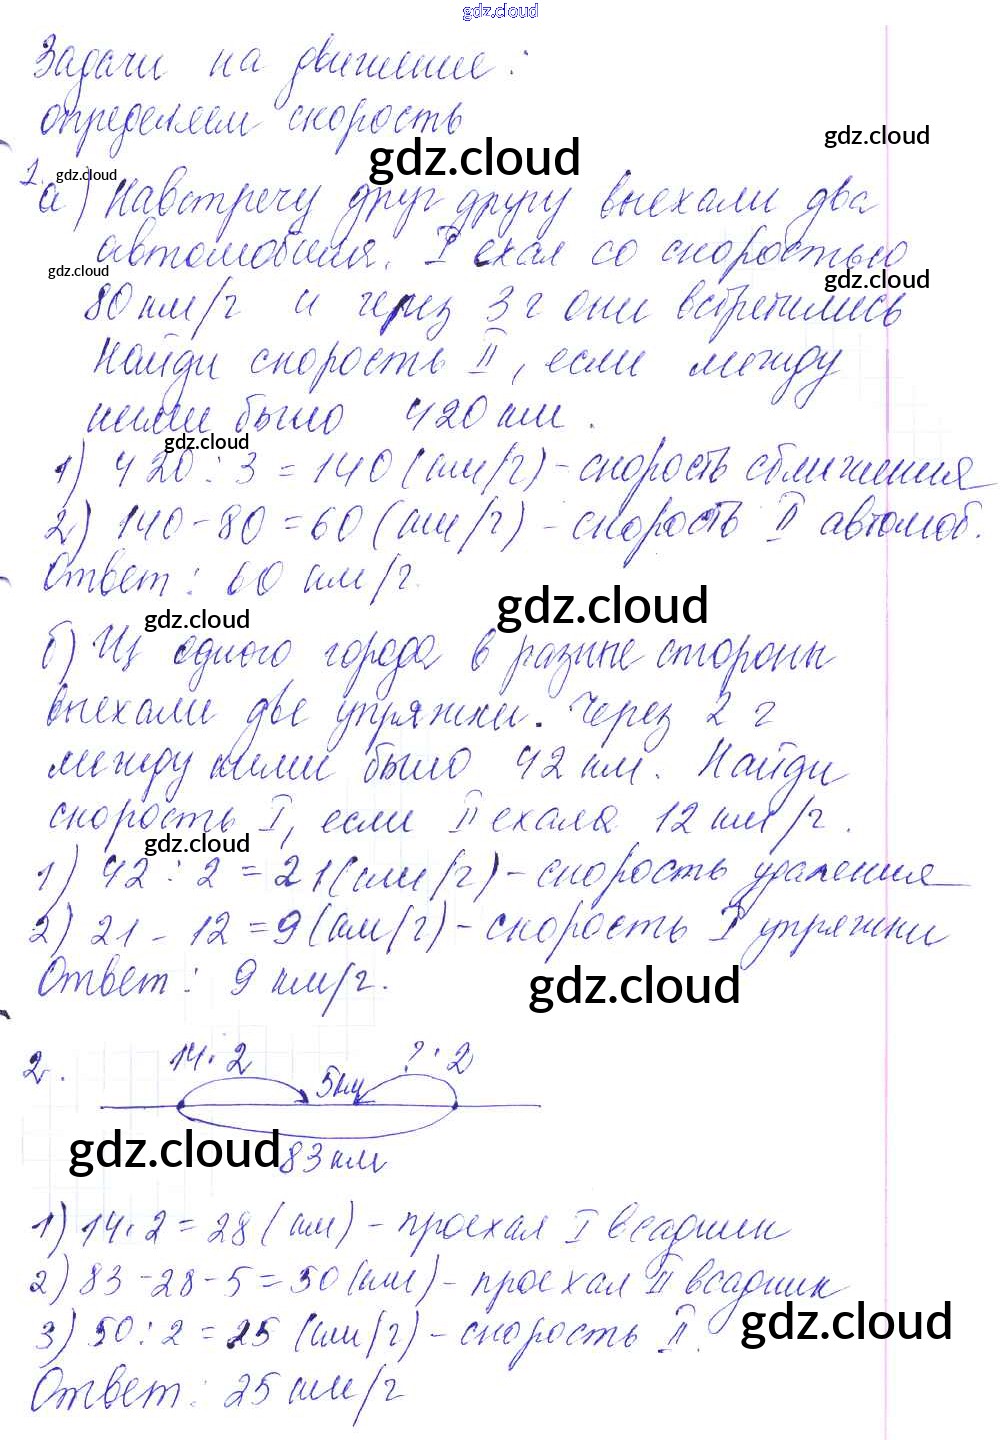 gdz.cloud
Задачи на движение:
определяем скорость
gdz.cloud
gdz.cloud
gdz.cloud
1.
а) Навстречу друг другу выехали два
автомобиля. I ехал со скоростью
gdz.cloud
gdz.cloud
80 км/г и через 3 г они встретились
Найди скорость II, если между
ними было 420 км.
gdz.cloud
1) 420 : 3 = 140 (км/г) - скорость сближения
2) 140 - 80 = 60 (км/г) - скорость II автомоб.
Ответ: 60 км/г.
gdz.cloud
gdz.cloud
б) Из одного города в разные стороны
выехали две упряжки. Через 2 г
между ними было 42 км. Найди
скорость I, если II ехала 12 км/г.
gdz.cloud
1) 42 : 2 = 21 (км/г) - скорость удаления
2) 21 - 12 = 9 (км/г) - скорость I упряжки
Ответ: 9 км/г.
gdz.cloud
2.
14·2 5км ?·2
gdz.cloud
83 км
1) 14·2 = 28 (км) - проехал I всадник
2) 83 - 28 - 5 = 50 (км) - проехал II всадник
gdz.cloud
3) 50 : 2 = 25 (км/г) - скорость II.
Ответ: 25 км/г